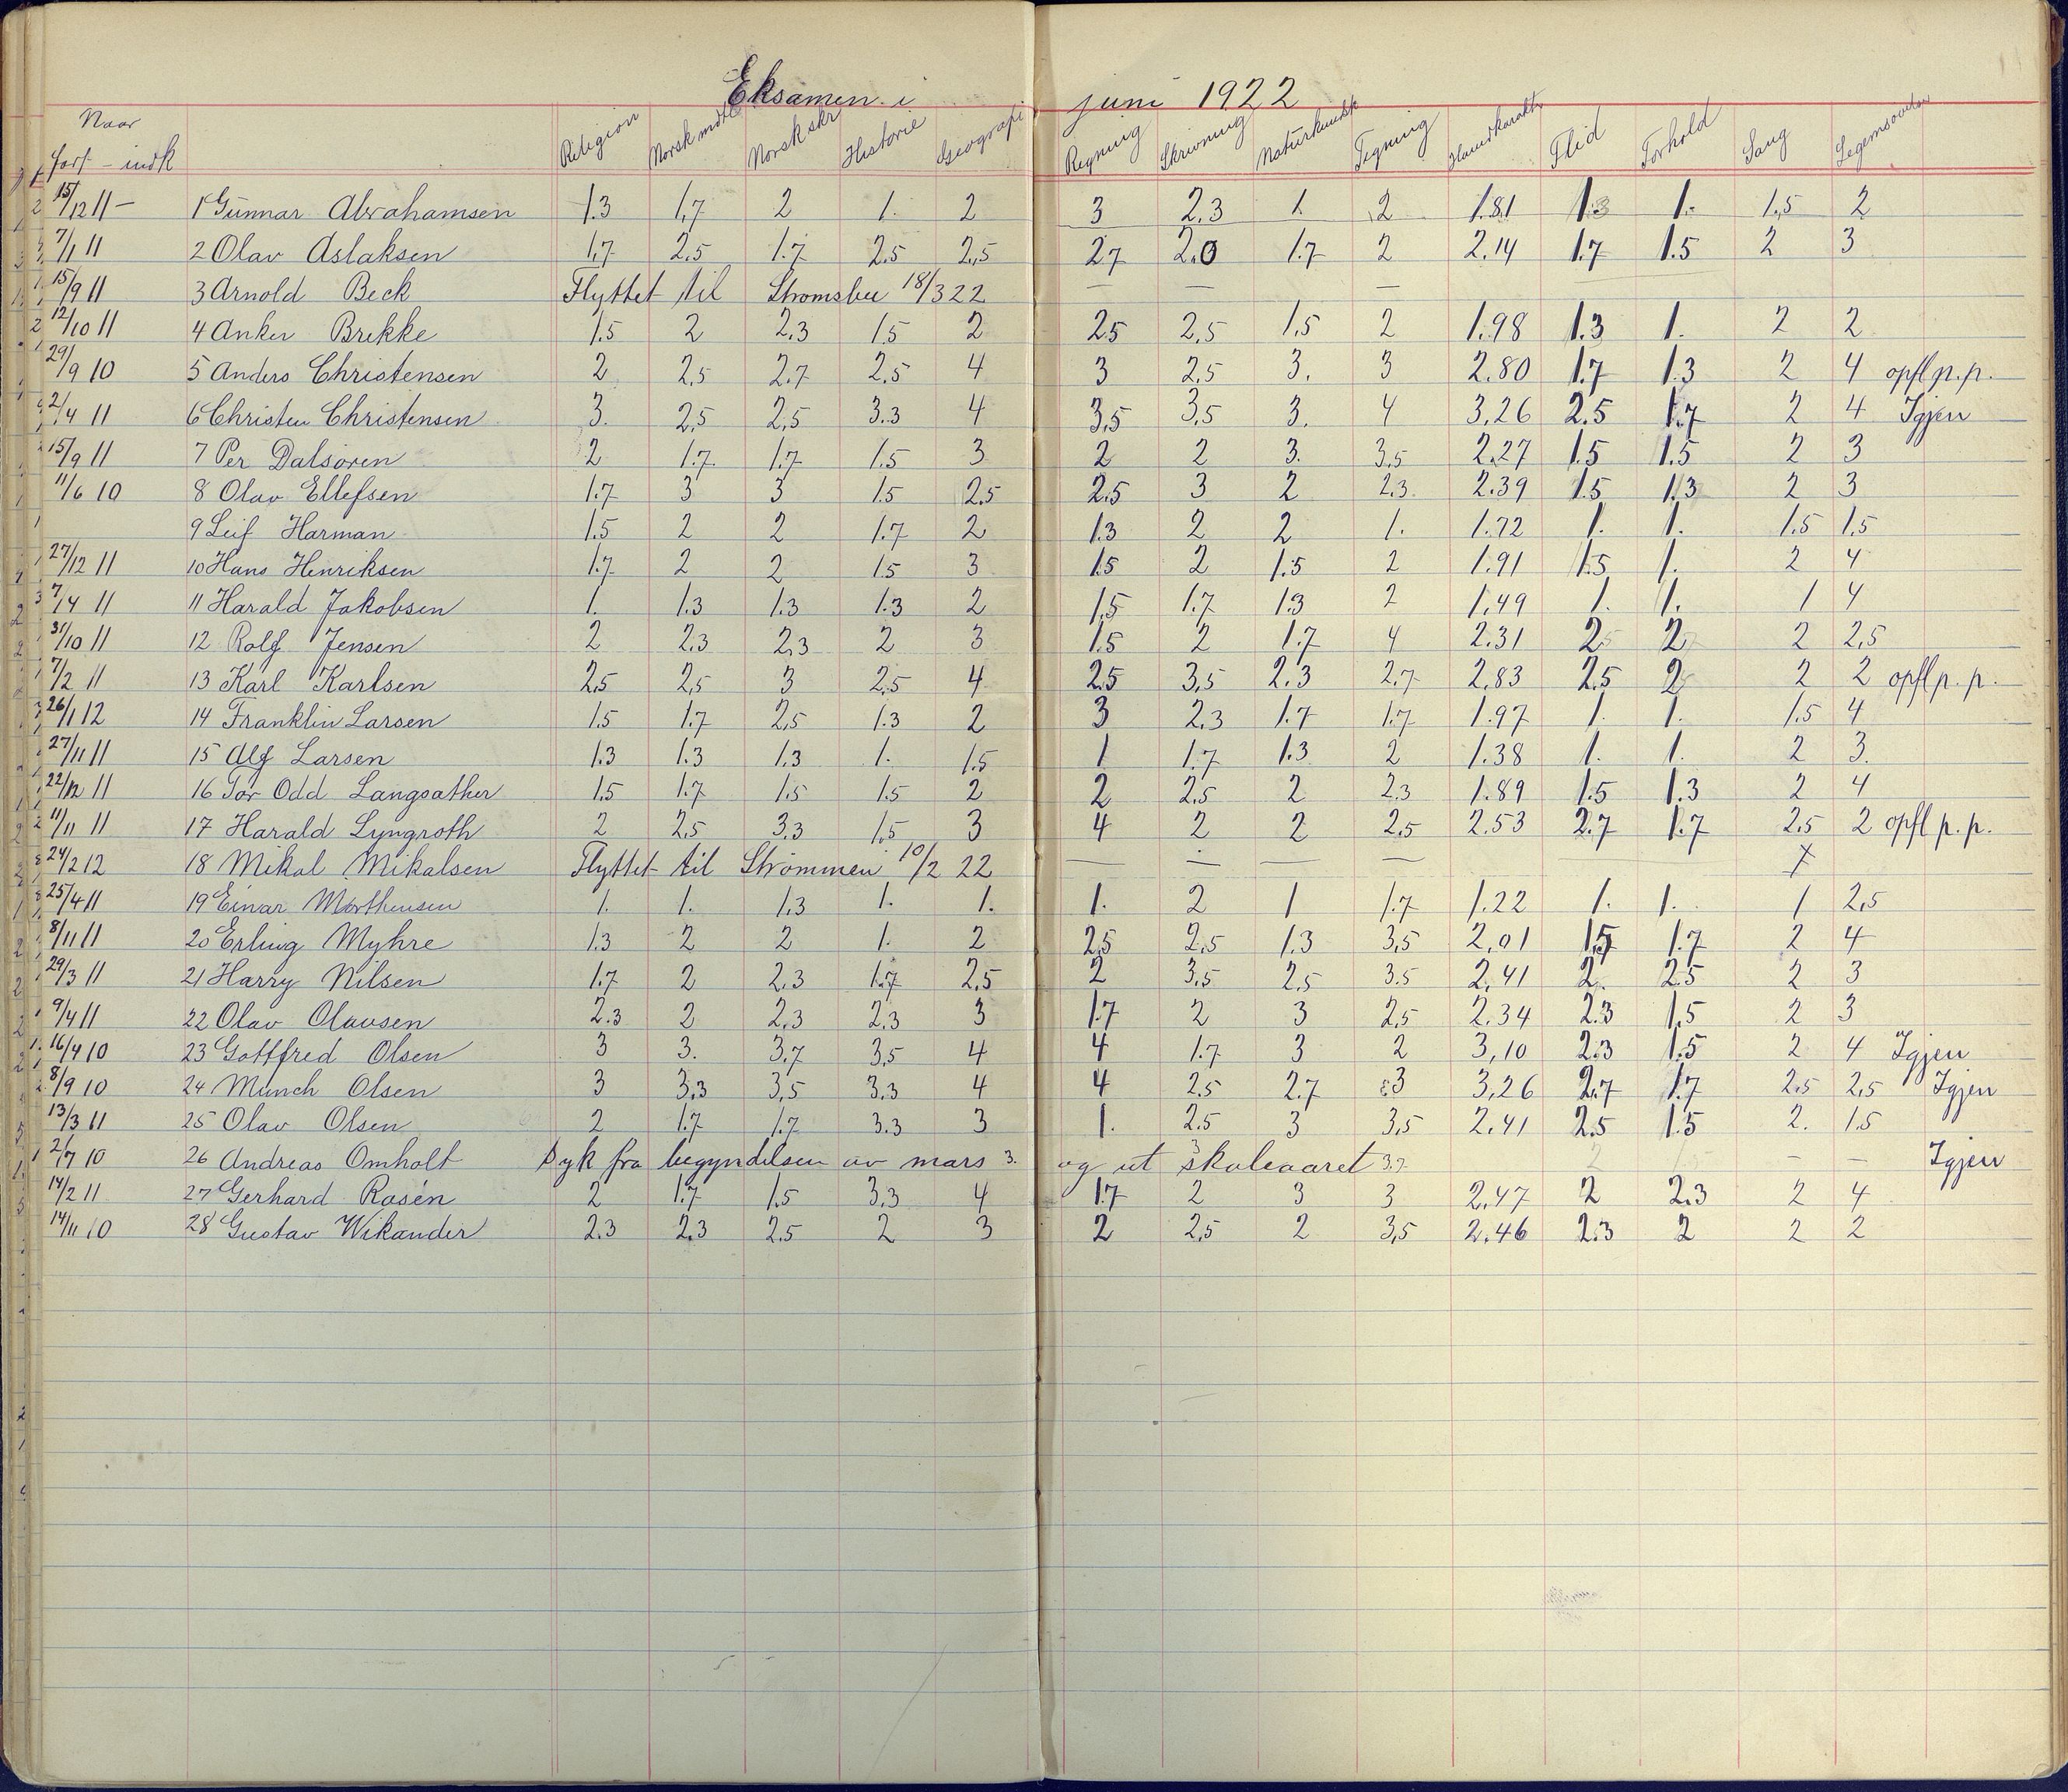 Eksamen i juni 1922
Naar
født - indk Religion Norsk mdtl Norsk skr Historie Geografi Regning Skrivning Naturkundsk Tegning Hovedkarakt Flid Forhold Sang Legemsøvelser
15/12 11 - 1 Gunnar Abrahamsen 1.3 1,7 2 1. 2 3 2.3 1. 2 1.81 1.3 1. 1,5 2
7/1 11 2 Olav Aslaksen 1,7 2,5 1.7 2.5 2,5 2.7 2.0 1.7 2 2.14 1.7 1.5 2 3
15/9 11 3 Arnold Beck Flyttet til Strømsbu 18/3 22 — — —
12/10 11 4 Anker Brekke 1.5 2 2.3 1.5 2 2.5 2,5 1,5 2 1.98 1.3 1. 2 2
29/9 10 5 Anders Christensen 2 2,5 2.7 2,5 4 3 2.5 3. 3 2.80 1.7 1.3 2 4 opfl p.p.
2/4 11 6 Christen Christensen 3. 2,5 2,5 3.3 4 3,5 3,5 3. 4 3,26 2.5 1.7 2 4 Igjen
15/9 11 7 Per Dalsøren 2 1.7. 1.7 1.5 3 2 2 3. 3,5 2.27 1.5 1.5 2 3
11/6 10 8 Olav Ellefsen 1.7 3 3 1.5 2.5 2.5 3 2 2.3. 2.39 1.5 1.3 2 3
9 Leif Harman 1.5 2 2 1.7 2 1.3 2 2 1. 1.72 1. 1. 1.5 1.5
27/12 11 10 Hans Henriksen 1.7 2 2 1.5 3 1.5 2 1.5 2 1.91 1.5 1. 2 4
7/4 11 11 Harald Jakobsen 1. 1.3 1.3 1.3 2 1,5 1.7 1.3 2 1,49 1. 1. 1 4
31/10 11 12 Rolf Jensen 2 2.3 2,3 2 3 1.5 2 1.7 4 2.31 2 2 2 2,5
7/2 11 13 Karl Karlsen 2,5 2,5 3 2,5 4 2.5 3,5 2.3 2.7 2,83 2,5 2 2 2 opfl p.p.
26/1 12 14 Franklin Larsen 1.5 1.7 2,5 1.3 2 3 2.3 1.7 1.7 1.97 1. 1. 1.5 4
27/11 11 15 Alf Larsen 1.3 1.3 1,3 1. 1.5 1 1.7 1.3 2 1.38 1. 1. 2 3.
22/12 11 16 Tor Odd Langsæther 1.5 1.7 1.5 1.5 2 2 2.5 2 2.3 1.89 1.5 1.3 2 4
11/11 11 17 Harald Lyngroth 2 2.5 3.3 1,5 3 4 2 2 2,5 2.53 2.7 1.7 2.5 2 opfl p.p.
24/2 12 18 Mikal Mikalsen Flyttet til Strømmen 10/2 22 — — — —
25/4 11 19 Einar Morthensen 1. 1. 1.3 1. 1. 1. 2 1 1.7 1.22 1. 1. 1 2,5
8/11 11 20 Erling Myhre 1.3 2 2 1. 2 2.5 2,5 1.3 3,5 2,01 1.5 1.7 2 4
29/3 11 21 Harry Nilsen 1.7 2 2,3 1.7 2,5 2 3,5 2,5 3.5 2,41 2. 2.5 2 3
9/4 11 22 Olav Olausen 2.3 2 2,3 2,3 3 1.7 2 3 2,5 2.34 2.3 1,5 2 3
16/4 10 23 Gottfred Olsen 3 3. 3,7 3,5 4 4 1.7 3 2 3,10 2.3 1.5 2 4 Igjen
8/9 10 24 Munch Olsen 3 3,3 3,5 3.3 4 4 2.5 2.7 3 3,26 2.7 1.7 2.5 2,5 Igjen
13/3 11 25 Olav Olsen 2 1.7 1.7 3.3 3 1. 2.5 3 3,5 2.41 2.5 1.5 2. 1.5
2/7 10 26 Andreas Omholt Syk fra begyndelsen av mars og ut skoleaaret — — Igjen
14/2 11 27 Gerhard Rosén 2 1.7 1.5 3,3 4 1.7 2 3 3 2,47 2 2.3 2 4
14/11 10 28 Gustav Wikander 2.3 2.3 2.5 2 3 2 2,5 2 3,5 2.46 2.3 2 2 2